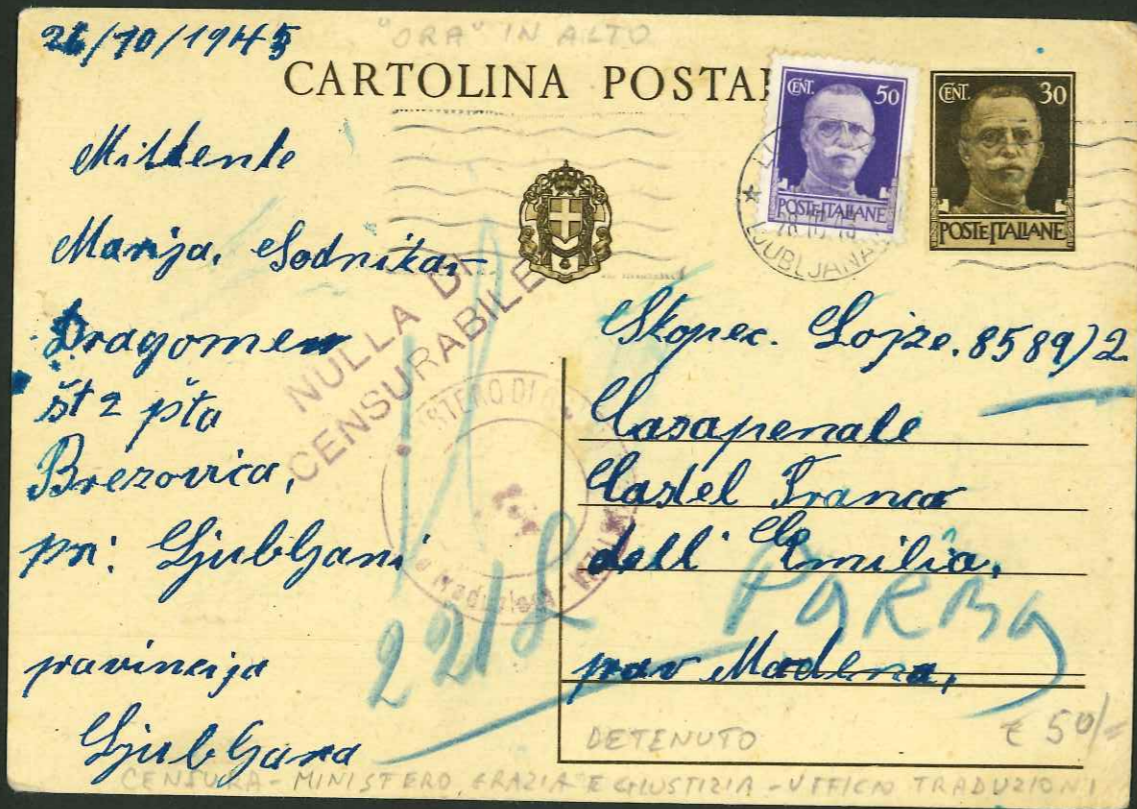 26/10/1943
"ORA" IN ALTO
CARTOLINA POSTALE
CENT. 50
POSTE ITALIANE
CENT. 30
POSTE ITALIANE
LJUBLJANA
Mittente
Marija. Sodnikar
Dragomer
št 2 pšta
Brezovica,
pri: Ljubljani
pravincija
Ljubljana
NULLA DI
CENSURABILE
STERO DI
Traduzioni
Skopec. Lojze. 8589)2
Casapenale
Castel Franco
dell' Emilia,
prov Modena,
PARMA
2212
DETENUTO
€ 50/=
CENSURA - MINISTERO GRAZIA E GIUSTIZIA - UFFICIO TRADUZIONI